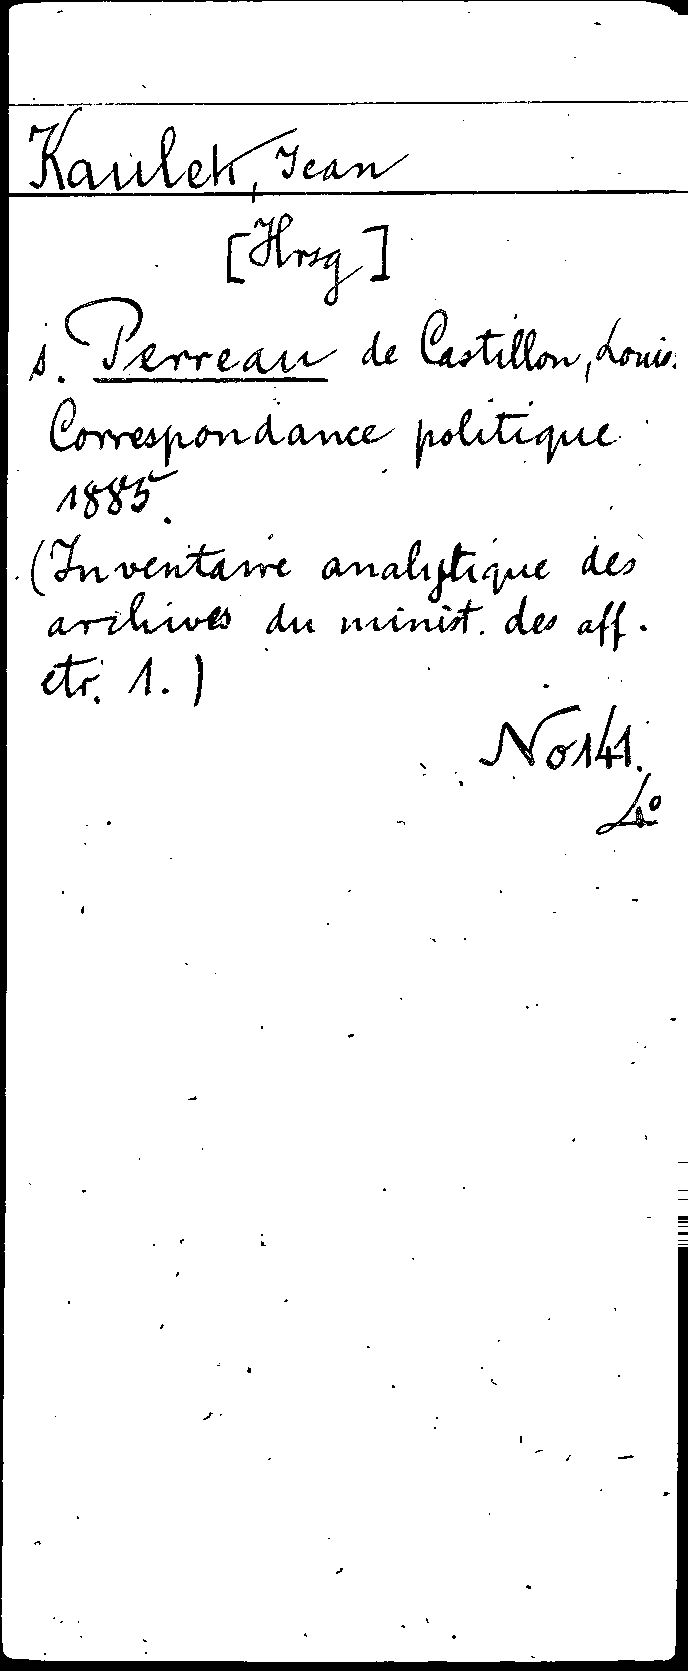 Kaulek, Jean
[Hrsg]
s. Perreau de Castillon, Louis.
Correspondance politique
1885.
(Inventaire analytique des
archives du minist. des aff.
etr. 1.)
No 141.